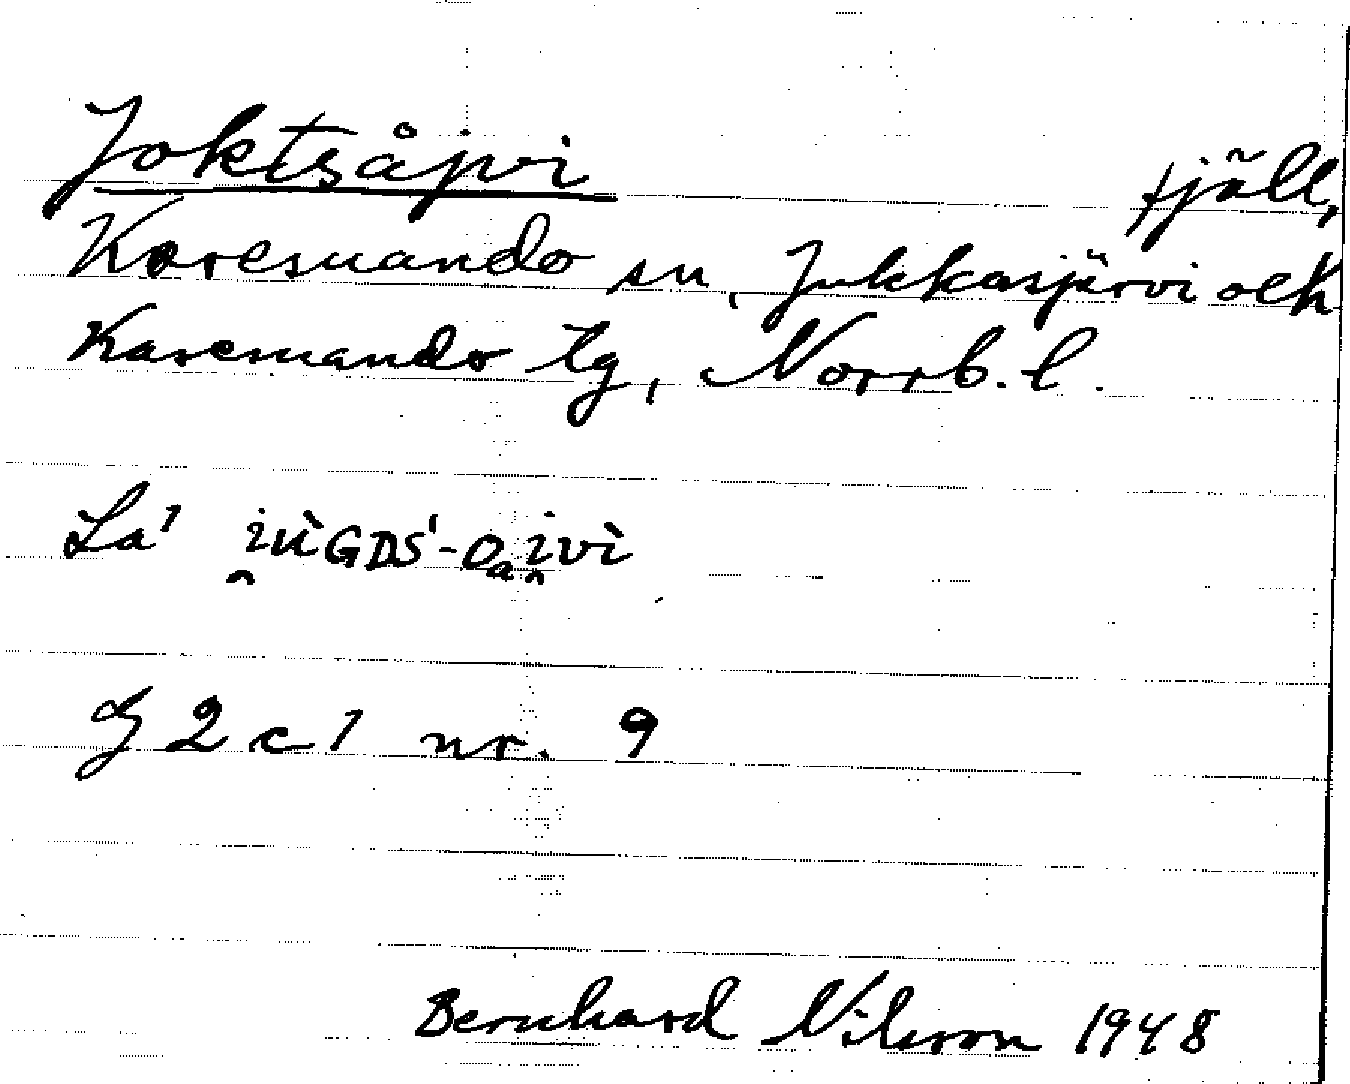 Joktsåjvi fjäll,
Karesuando sn, Jukkasjärvi och
Karesuando tg, Norrb. l.
La' i̯ùGDS'-Oₐi̯vì
G 2 c 1 nr. 9
Bernhard Nilsson 1948